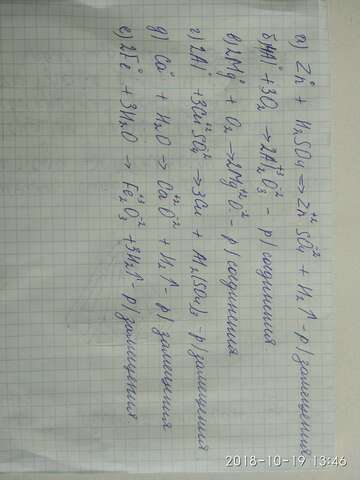 а) Zn⁰ + H₂SO₄ → Zn⁺²SO₄⁻² + H₂↑ - р/замещения
б) 4Al⁰ + 3O₂ → 2Al₂⁺³O₃⁻² - р/соединения
в) 2Mg⁰ + O₂ → 2Mg⁺²O⁻² - р/соединения
г) 2Al⁰ + 3Cu⁺²SO₄⁻² → 3Cu + Al₂(SO₄)₃ - р/замещения
д) Ca⁰ + H₂O → Ca⁺²O⁻² + H₂↑ - р/замещения
е) 2Fe⁰ + 3H₂O → Fe₂⁺³O₃⁻² + 3H₂↑ - р/замещения
2018-10-19 13:46